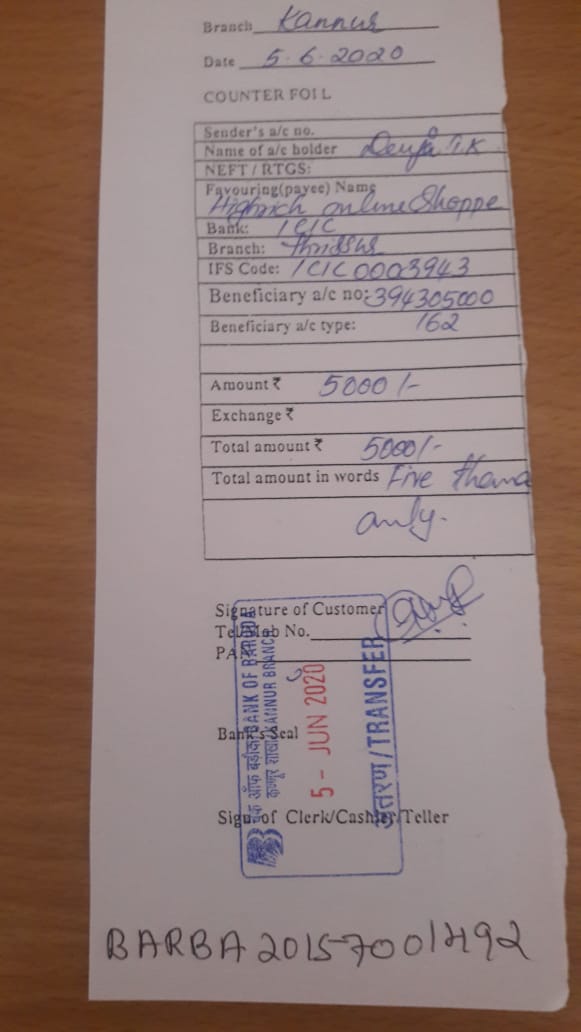 Branch Kannur
Date 5.6.2020
COUNTER FOIL
Sender's a/c no.
Name of a/c holder T.K
NEFT / RTGS:
Favouring(payee) Name
Highrich online Shoppe
Bank: ICIC
Branch: Thrissur
IFS Code: ICIC0003943
Beneficiary a/c no: 394305000
Beneficiary a/c type: 162
Amount ₹ 5000/-
Exchange ₹
Total amount ₹ 5000/-
Total amount in words Five
only.
Signature of Customer
Tel/Mob No.
PAN
Bank's Seal
Sign. of Clerk/Cashier/Teller
बैंक ऑफ बड़ौदा BANK OF BARODA
कण्णूर शाखा/KANNUR BRANCH
5 - JUN 2020
अंतरण/TRANSFER